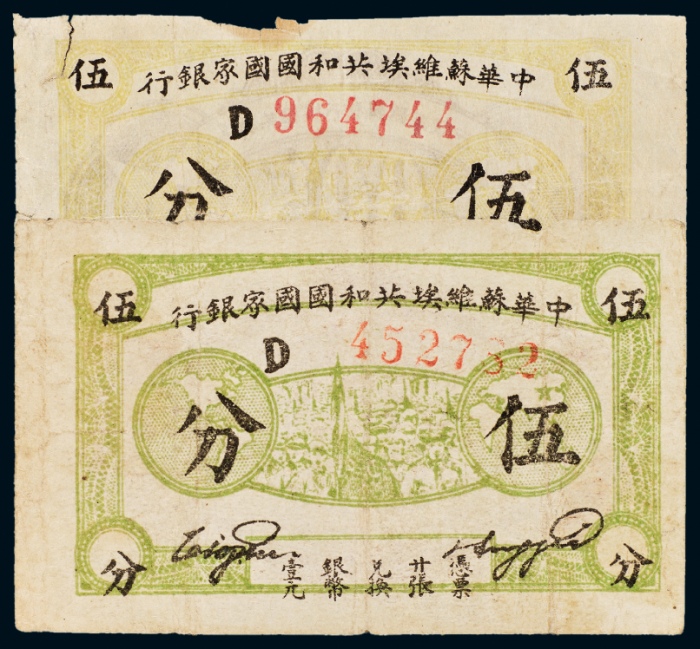 伍 中華蘇維埃共和國國家銀行 伍
D 964744
伍分
伍 中華蘇維埃共和國國家銀行 伍
D 452732
伍分
分 分
憑票廿張兌換銀幣壹元